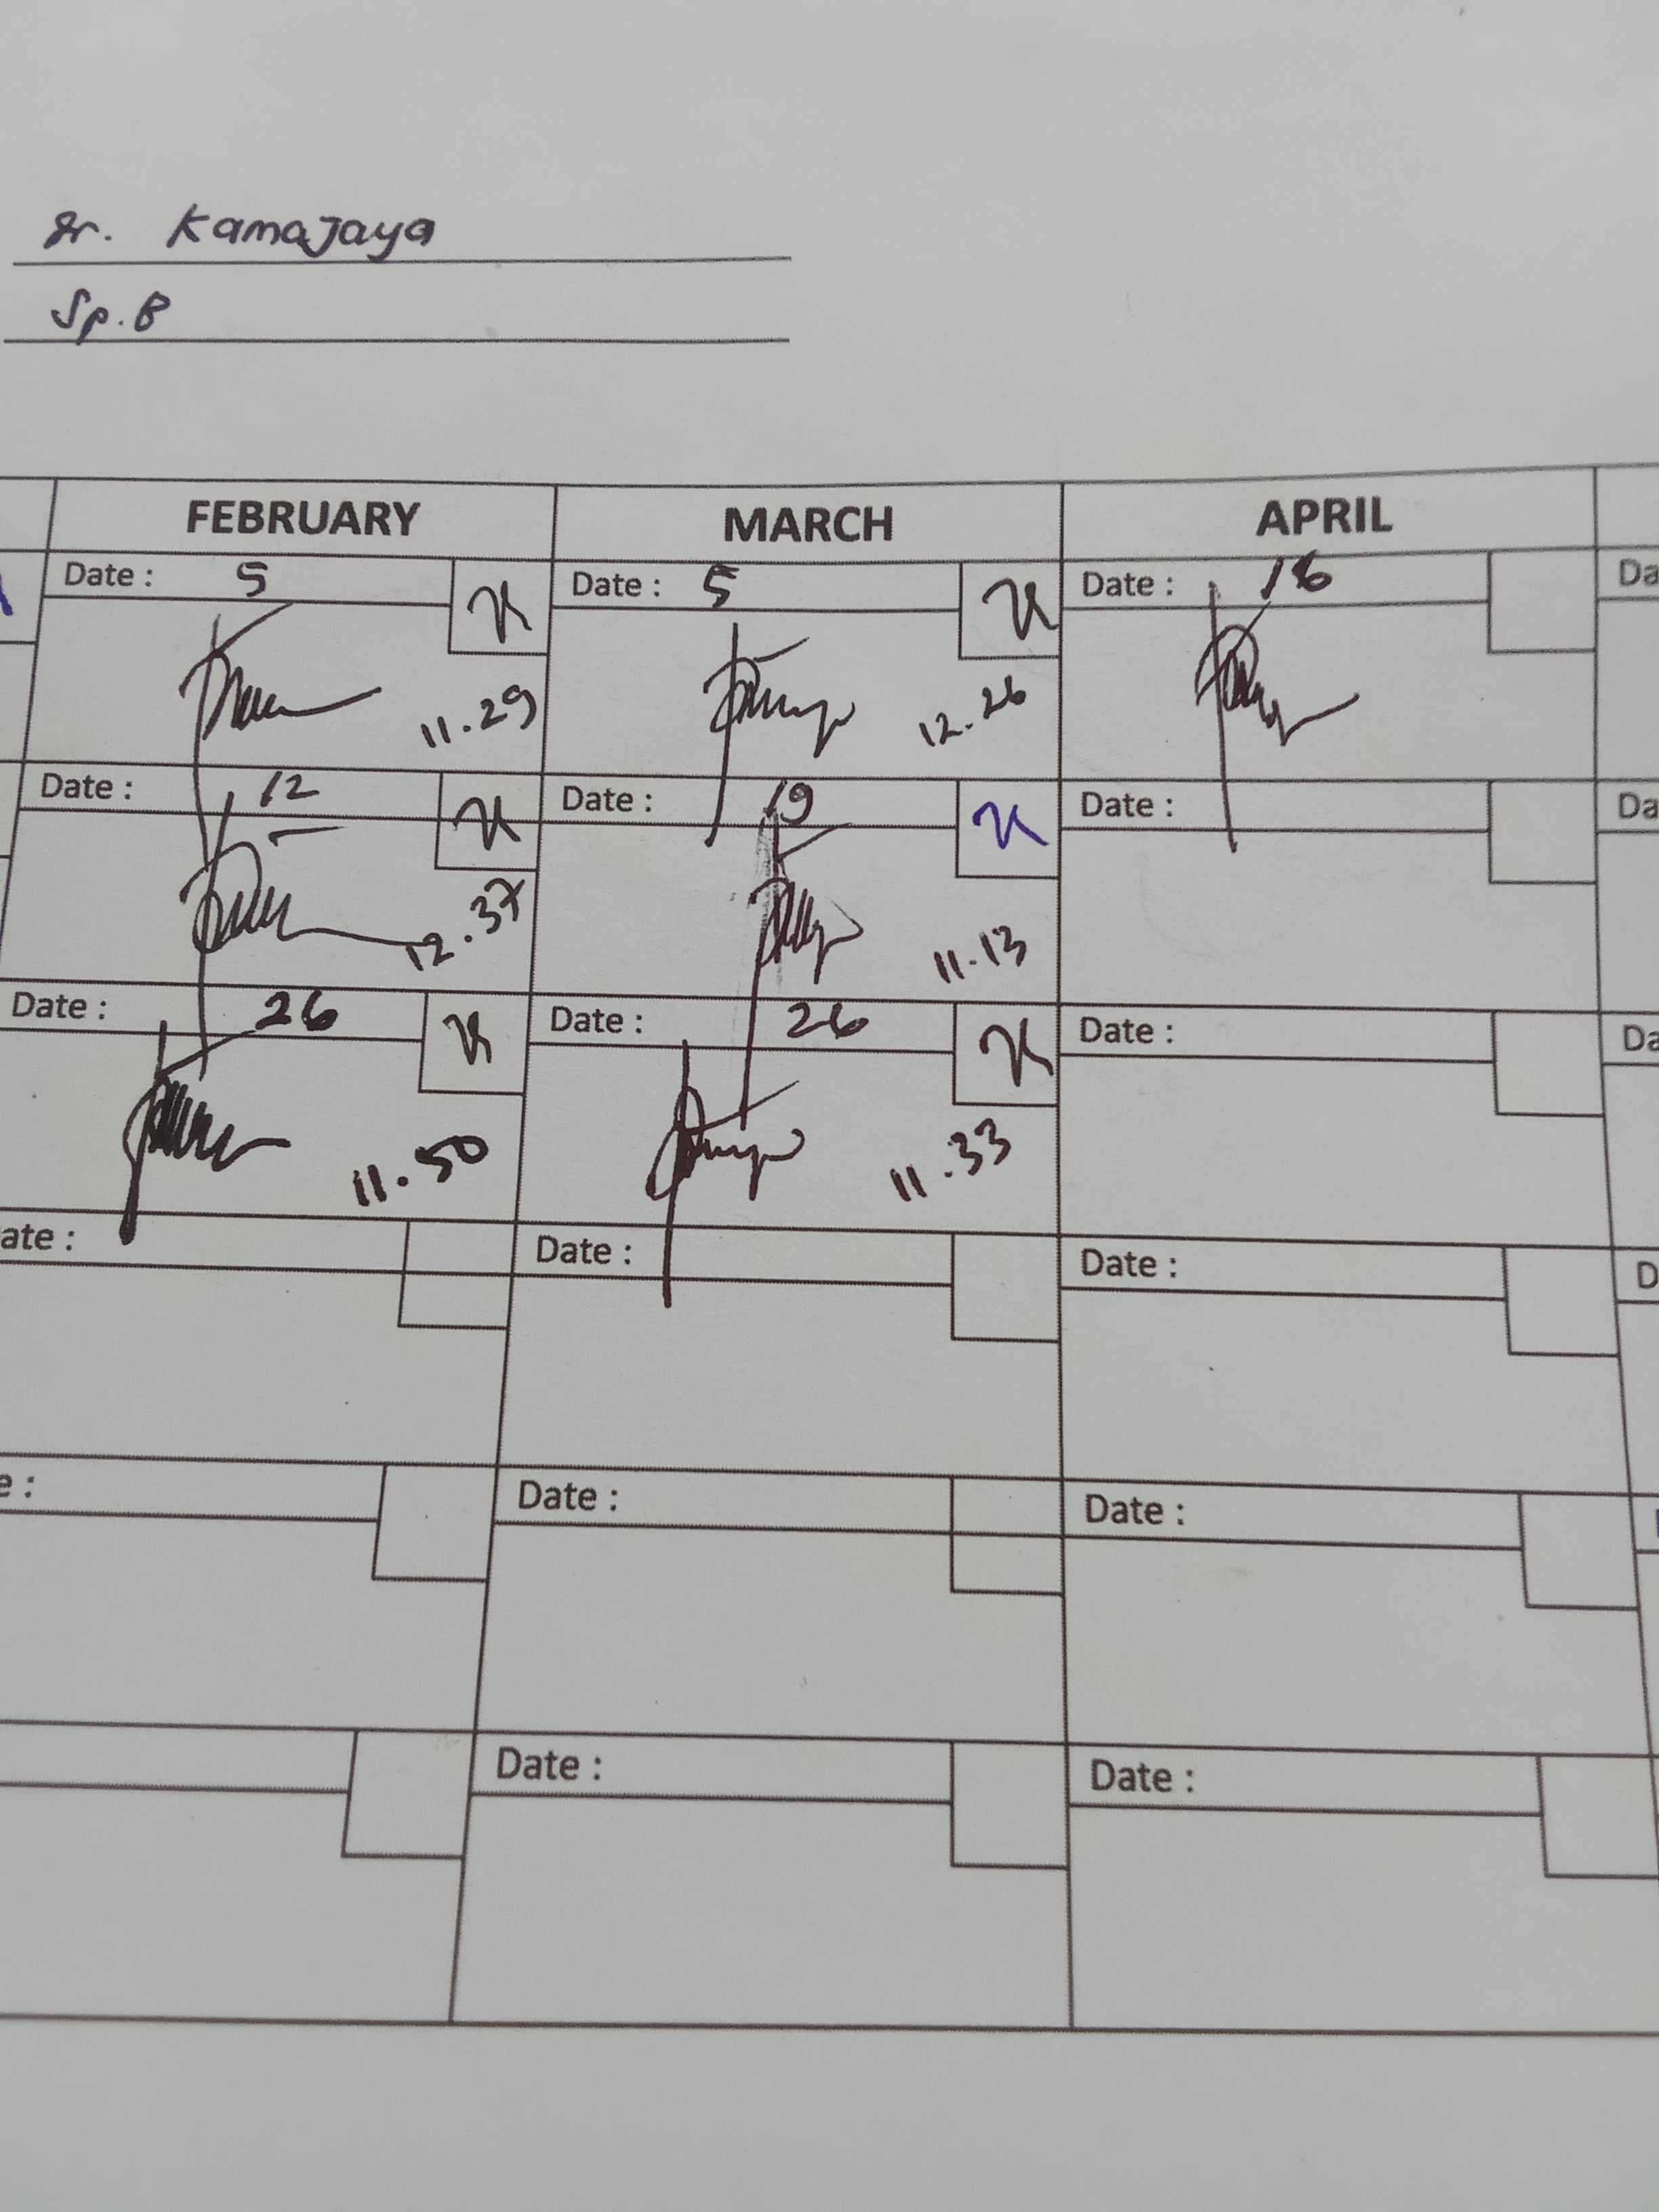 dr. Kamajaya
Sp.B
FEBRUARY MARCH APRIL
Date : 5 Date : 5 Date : 16 Da
11.29 12.26
Date : 12 Date : 19 Date : Da
12.37 11.13
Date : 26 Date : 26 Date : Da
11.50 11.33
ate : Date : Date : D
e : Date : Date :
Date : Date :